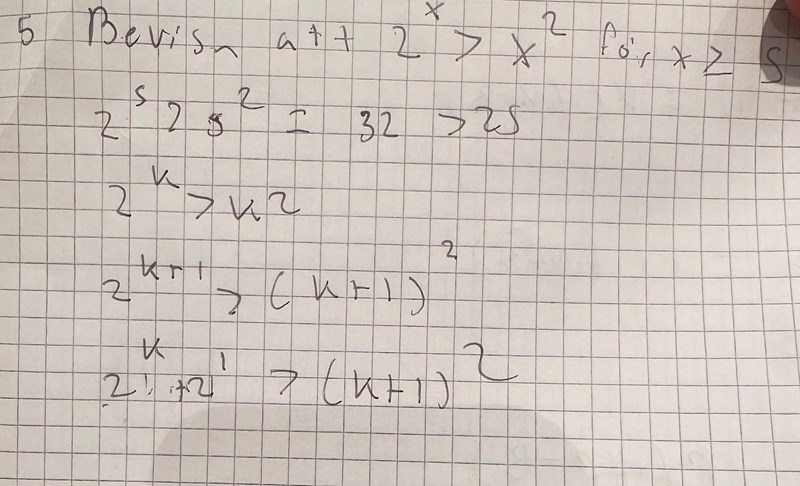 5 Bevisa att 2^x > x^2 för x ≥ 5
2^5 > 5^2 = 32 > 25
2^k > k2
2^k+1 > (k+1)^2
2^k · 2^1 > (k+1)^2